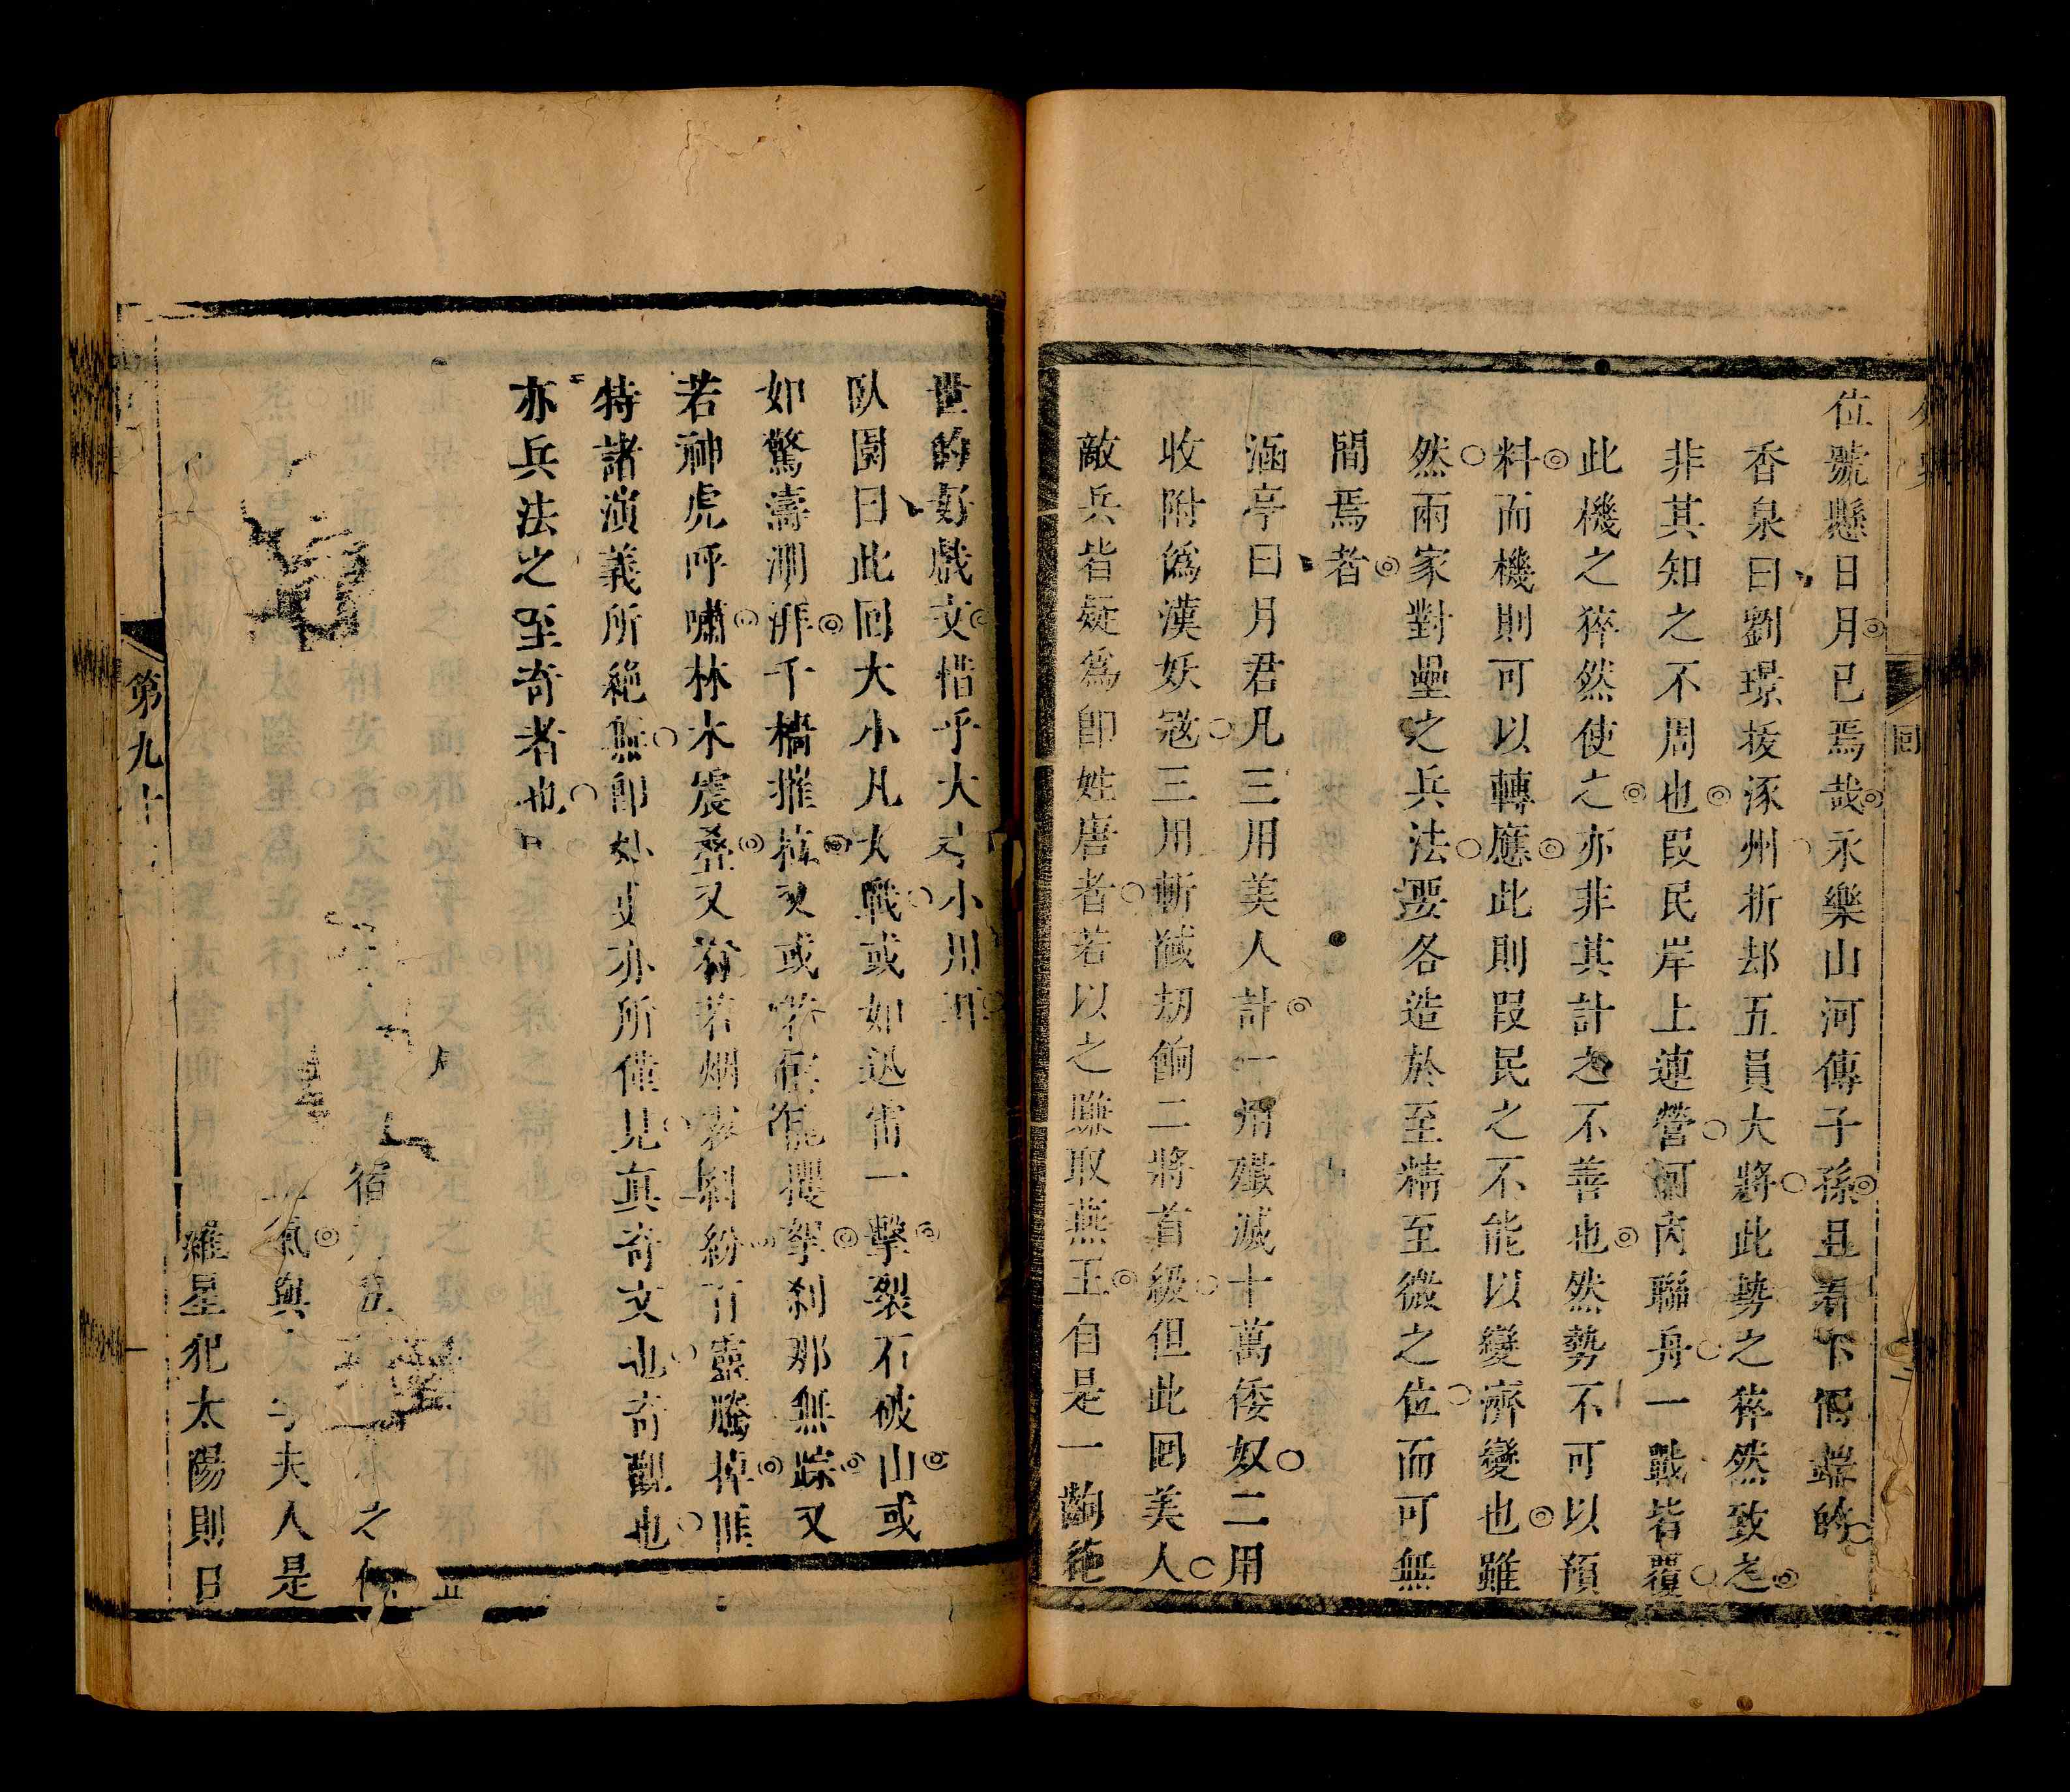 外史
回
位號懸日月已焉哉永樂山河傳子孫且看下回端的
香泉曰劉璟拔涿州折却五員大將此勢之猝然致之
非其知之不周也叚民岸上連營河內聯舟一戰皆覆
此機之猝然使之亦非其計之不善也然勢不可以預
料而機則可以轉應此則叚民之不能以變濟變也雖
然兩家對壘之兵法要各造於至精至微之位而可無
間焉者
涵亭曰月君凡三用美人計一用殲滅十萬倭奴二用
收附僞漢妖寇三用斬馘刼餉二將首級但此回美人
敵兵皆疑爲卽姓唐者若以之賺取燕王自是一齣絶
世的好戲文惜乎大才小用耳
臥園曰此回大小凡火戰或如迅雷一擊裂石破山或
如驚濤澎湃千檣摧拉又或若罡風攫拏刹那無踪又
若神虎呼嘯林木震叠又有若烟雲糾紛百靈騰掉
特諸演義所絶無卽外史亦所僅見眞奇文也奇觀也
亦兵法之至奇者也
宿 之
氣與 夫人是
羅星犯太陽則日
第九十